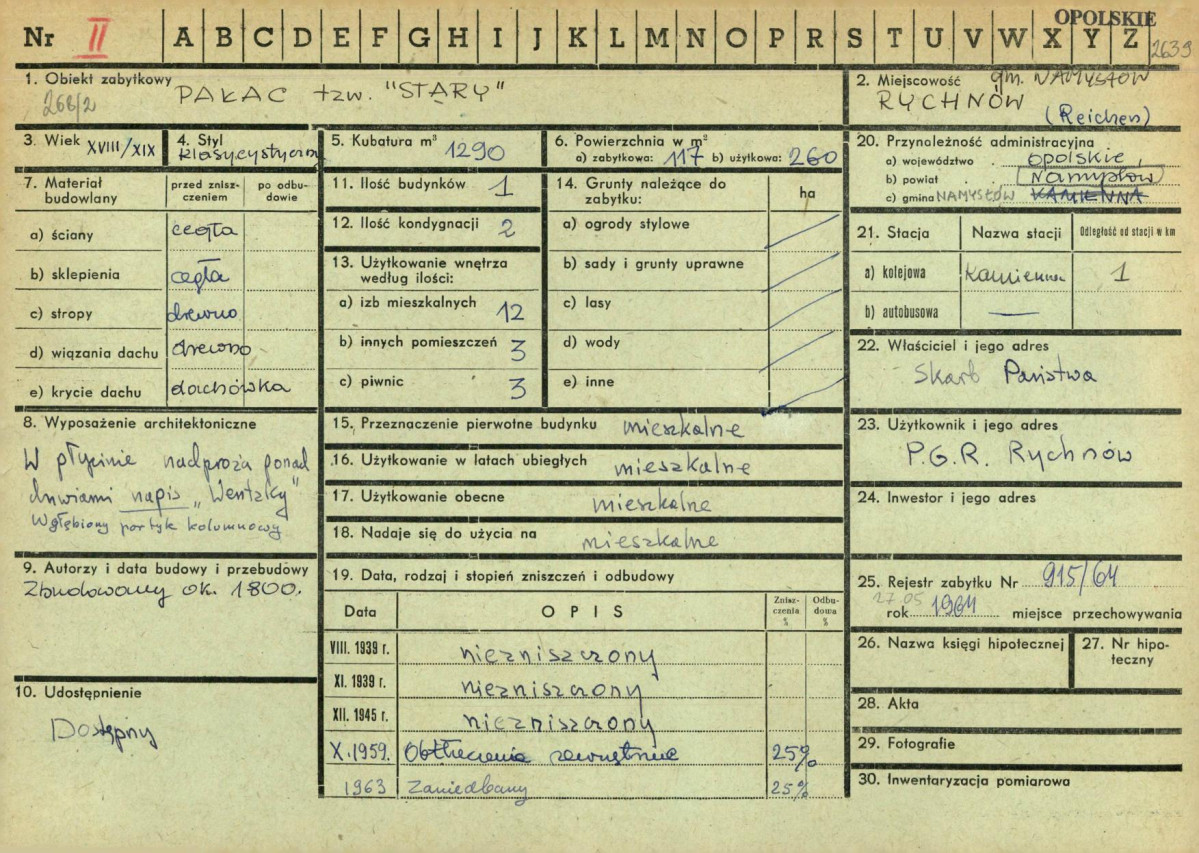 OPOLSKIE
Nr II A B C D E F G H I J K L M N O P R S T U V W X Y Z 2639
1. Obiekt zabytkowy PAŁAC tzw. "STARY"
268/2
2. Miejscowość gm. NAMYSŁÓW
RYCHNÓW
(Reichen)
3. Wiek XVIII/XIX
4. Styl
klasycystyczny
5. Kubatura m³ 1290
6. Powierzchnia w m²
a) zabytkowa: 117 b) użytkowa: 260
20. Przynależność administracyjna
a) województwo opolskie,
b) powiat Namysłów
c) gmina NAMYSŁÓW KAMIENNA
7. Materiał budowlany
przed znisz-
czeniem
po odbu-
dowie
a) ściany cegła
b) sklepienia cegła
c) stropy drewno
d) wiązania dachu drewno
e) krycie dachu dachówka
11. Ilość budynków 1
12. Ilość kondygnacji 2
13. Użytkowanie wnętrza
według ilości:
a) izb mieszkalnych 12
b) innych pomieszczeń 3
c) piwnic 3
14. Grunty należące do
zabytku:
ha
a) ogrody stylowe
b) sady i grunty uprawne
c) lasy
d) wody
e) inne
21. Stacja Nazwa stacji Odległość od stacji w km
a) kolejowa Kamienna 1
b) autobusowa —
22. Właściciel i jego adres
Skarb Państwa
8. Wyposażenie architektoniczne
W płycinie nadproża ponad
drzwiami napis „Wentzky"
Wgłębiony portyk kolumnowy
15. Przeznaczenie pierwotne budynku mieszkalne
16. Użytkowanie w latach ubiegłych mieszkalne
17. Użytkowanie obecne mieszkalne
18. Nadaje się do użycia na mieszkalne
23. Użytkownik i jego adres
P.G.R. Rychnów
24. Inwestor i jego adres
9. Autorzy i data budowy i przebudowy
Zbudowany ok. 1800.
10. Udostępnienie
Dostępny
19. Data, rodzaj i stopień zniszczeń i odbudowy
Data OPIS Znisz-
czenia
%
Odbu-
dowa
%
VIII. 1939 r. niezniszczony
XI. 1939 r. niezniszczony
XII. 1945 r. niezniszczony
X.1959. Obtłuczenia zewnętrzne 25%
1963 Zaniedbany 25%
25. Rejestr zabytku Nr 915/64
27.05
rok 1964 miejsce przechowywania
26. Nazwa księgi hipotecznej
27. Nr hipo-
teczny
28. Akta
29. Fotografie
30. Inwentaryzacja pomiarowa